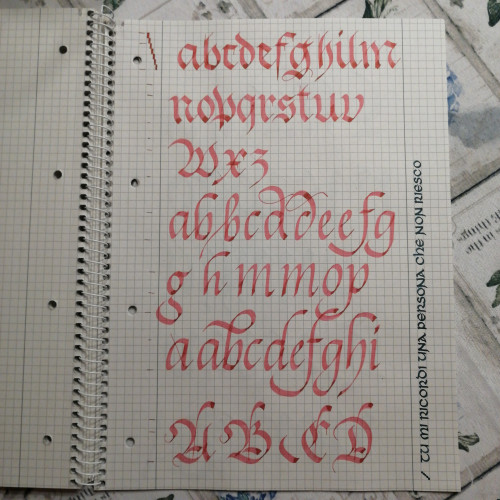 abcdefghilm
nopqrstuv
Wxz
abbcddeefg
ghmmop
aabcdefghi
ABCD
/ TU MI RICORDI UNA PERSONA CHE NON RIESCO